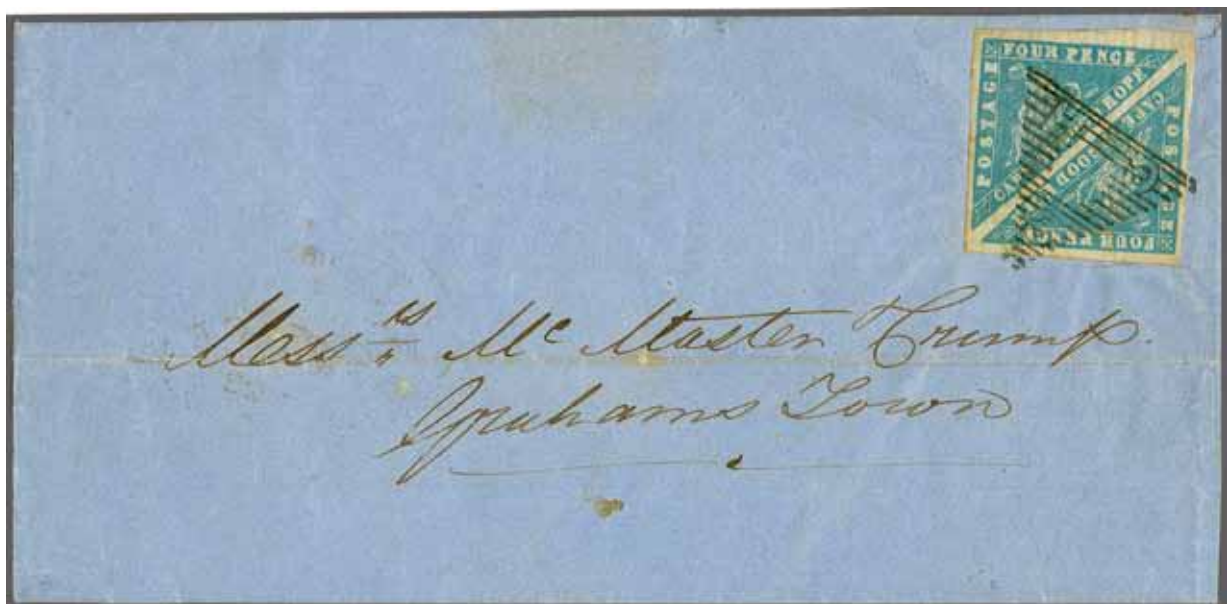 FOUR PENCE
POSTAGE
CAPE OF GOOD HOPE
POSTAGE
FOUR PENCE
Mess.rs Mc Master Crump.
Grahams Town